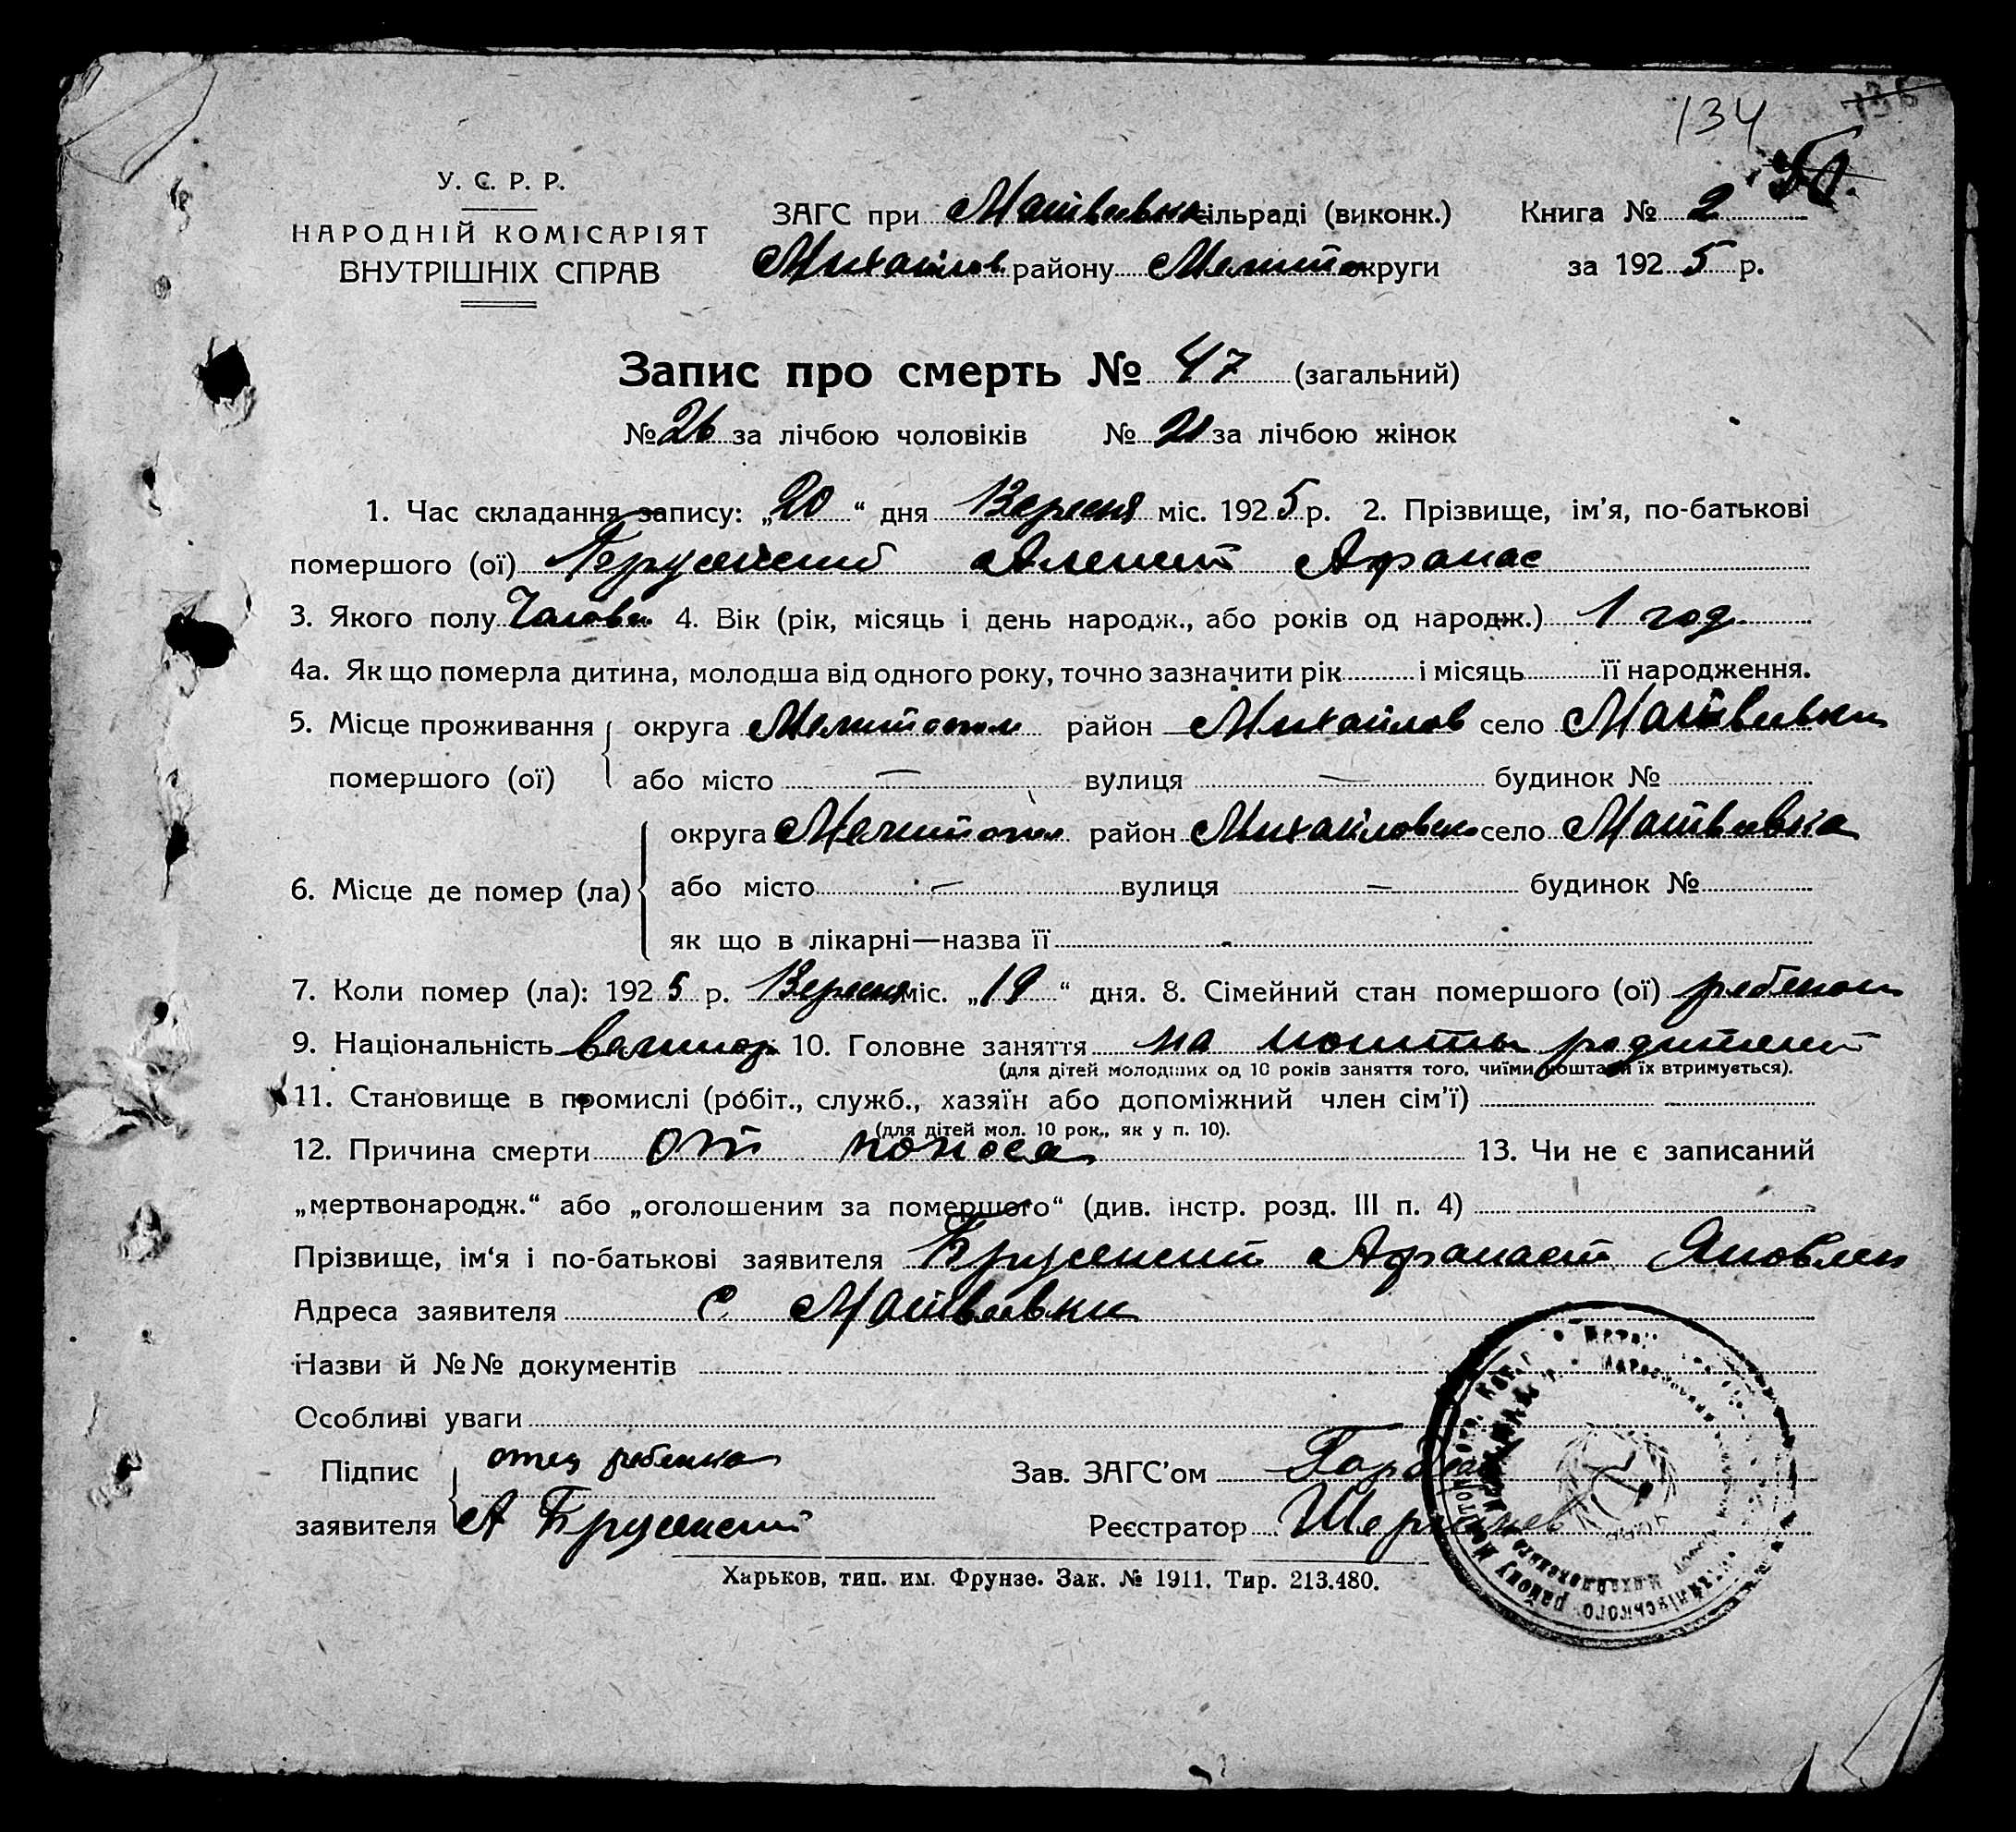 134
У. С. Р. Р.
НАРОДНІЙ КОМІСАРІЯТ
ВНУТРІШНІХ СПРАВ
ЗАГС при Матвеевск сільраді (виконк.) Книга № 2
Михайлов району Мелито округи за 1925 р.
Запис про смерть № 47 (загальний)
№ 26 за лічбою чоловіків № 21 за лічбою жінок
1. Час складання запису: „20“ дня Вересня міс. 1925 р. 2. Прізвище, ім’я, по-батькові
помершого (ої) Афанас
3. Якого полу Чолови 4. Вік (рік, місяць і день народж., або років од народж.) 1 год.
4а. Як що померла дитина, молодша від одного року, точно зазначити рік і місяць її народження.
5. Місце проживання округа Мелитопол район Михайлов село Матвеевки
помершого (ої) або місто — вулиця — будинок №
округа Мелитопол район Михайловск село Матвеевка
6. Місце де помер (ла) або місто — вулиця — будинок №
як що в лікарні—назва її
7. Коли помер (ла): 1925 р. Вересня міс. „19“ дня. 8. Сімейний стан помершого (ої) ребенок
9. Національність 10. Головне заняття на кошты родителей
(для дітей молодших од 10 років заняття того, чиїми коштами їх втримується).
11. Становище в промислі (робіт., служб., хазяїн або допоміжний член сім’ї)
(для дітей мол. 10 рок., як у п. 10).
12. Причина смерти от поноса 13. Чи не є записаний
„мертвонародж.“ або „оголошеним за помершого“ (див. інстр. розд. III п. 4)
Прізвище, ім‘я і по-батькові заявителя Брусенский Афанасий Яковлев
Адреса заявителя С Матвеевки
Назви й №№ документів
Особливі уваги
Підпис отец ребенка Зав. ЗАГС’ом
заявителя А Брусенский Реєстратор
Харьков, тип. им. Фрунзе. Зак. № 1911. Тир. 213.480.